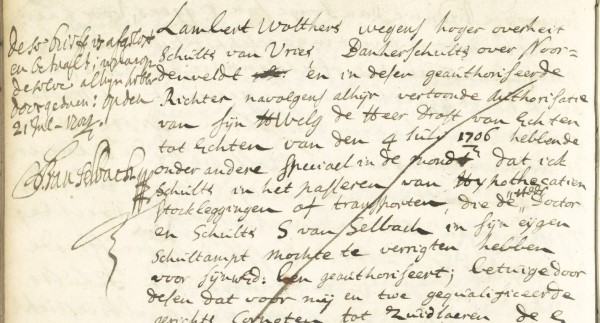 dese brieff is afgelost
en betaelt,
desolve alhijr
doorgedaen: op den
21 Jul - 1707
S van Selbach
Lambert Wolthers wegens hoger overheit
Schults van Vries, Dankerschults over Noor-
denveldt en in desen geauthoriseerde
Richter navolgens alhijr vertoonde Authorisatie
van sijn HWelg de Heer Drost van Echten
tot Echten van den 4 July 1706 hebbende
onder andere speciael in de mondt dat ick
Schults in het passeren van Hypothecatien
stockleggingen of transporten, die de Doctor
en Schults S van Selbach in sijn eijgen
Schultampt mochte te verrigten hebben
voor sijn geauthoriseert; betuige door
desen dat voor mij en twe gequalificeerde
gerichts Cornoten tot Zuidlaeren de E